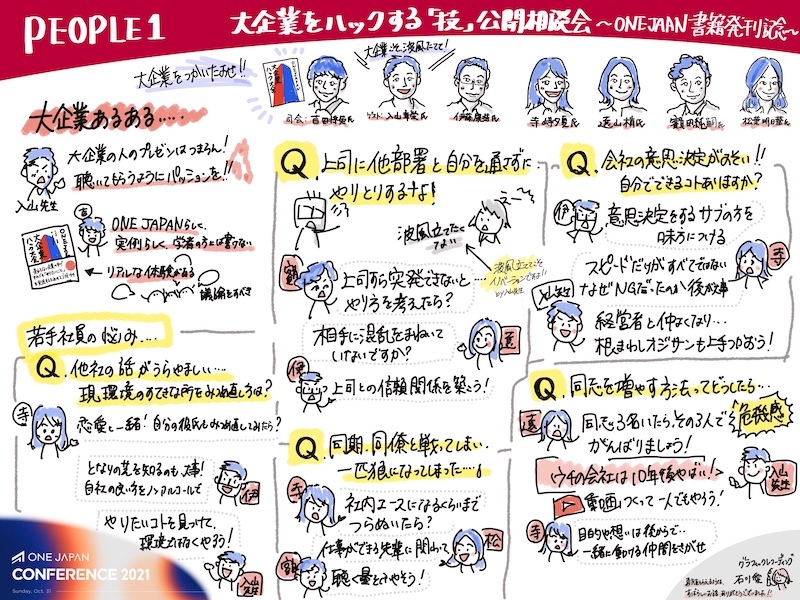 PEOPLE 1
大企業をハックする「技」公開相談会 〜ONE JAPAN 書籍発刊記念〜
大企業をつかいたおせ!!
大企業こそ波風たてて!
大企業ハック大全
司会:吉田
入山
伊藤
寺崎夕夏氏
松葉明日華氏
大企業あるある……
大企業の人のプレゼンはつまらん!
聴いてもらうようにパッションを!!
入山先生
吉
ONE JAPANらしく、
実例らしく、学者の方には書けない
リアルな体験がある
議論をすべき
大企業ハック大全
若手社員の悩み….
Q. 他社の話がうらやましい…
現環境のすてきな所をみつめ直し方は?
寺
恋愛と一緒! 自分の彼氏もみつめ直してみたら?
となりの芝を知るのも大事!
自社の良い方をノンアルコールで
伊
やりたいコトを見つけて、
環境ではなくやろう!
入山先生
ONE JAPAN
CONFERENCE 2021
Sunday, Oct. 31
Q. 上司に他部署と自分を通さずに
やりとりするな!
波風立てたくない
波風立ててこそ
イノベーションですよ!!
by入山先生
額
上司すら突発できないと…
やり方を考えたら?
相手に混乱をまねいて
いないですか?
遠
伊
上司との信頼関係を築こう!
Q. 同期、同僚と戦ってしまい
一匹狼になってしまった…。
寺
社内エースになるくらいまで
つらぬいたら?
仕事ができる先輩に関わって
松
額
聴く量をふやそう!
Q. 会社の意思決定がおそい!!
自分でできるコトありますか?
伊
意思決定をするサブの方を
味方につける
スピードだけがすべてではない
なぜNGだったのか後が大事
寺
入山先生
経営者と仲よくなり…
根まわしオジサンも上手つかおう!
Q. 同志を増やす方法ってどうしたら…
危機感
遠
同志3名いたら、その3人で
がんばりましょう!
ウチの会社は10年後やばい!
入山先生
動画つくって一人でもやろう!
寺
目的や想いは後からで…
一緒に働ける仲間をさがせ
グラフィックレコーディング
石川